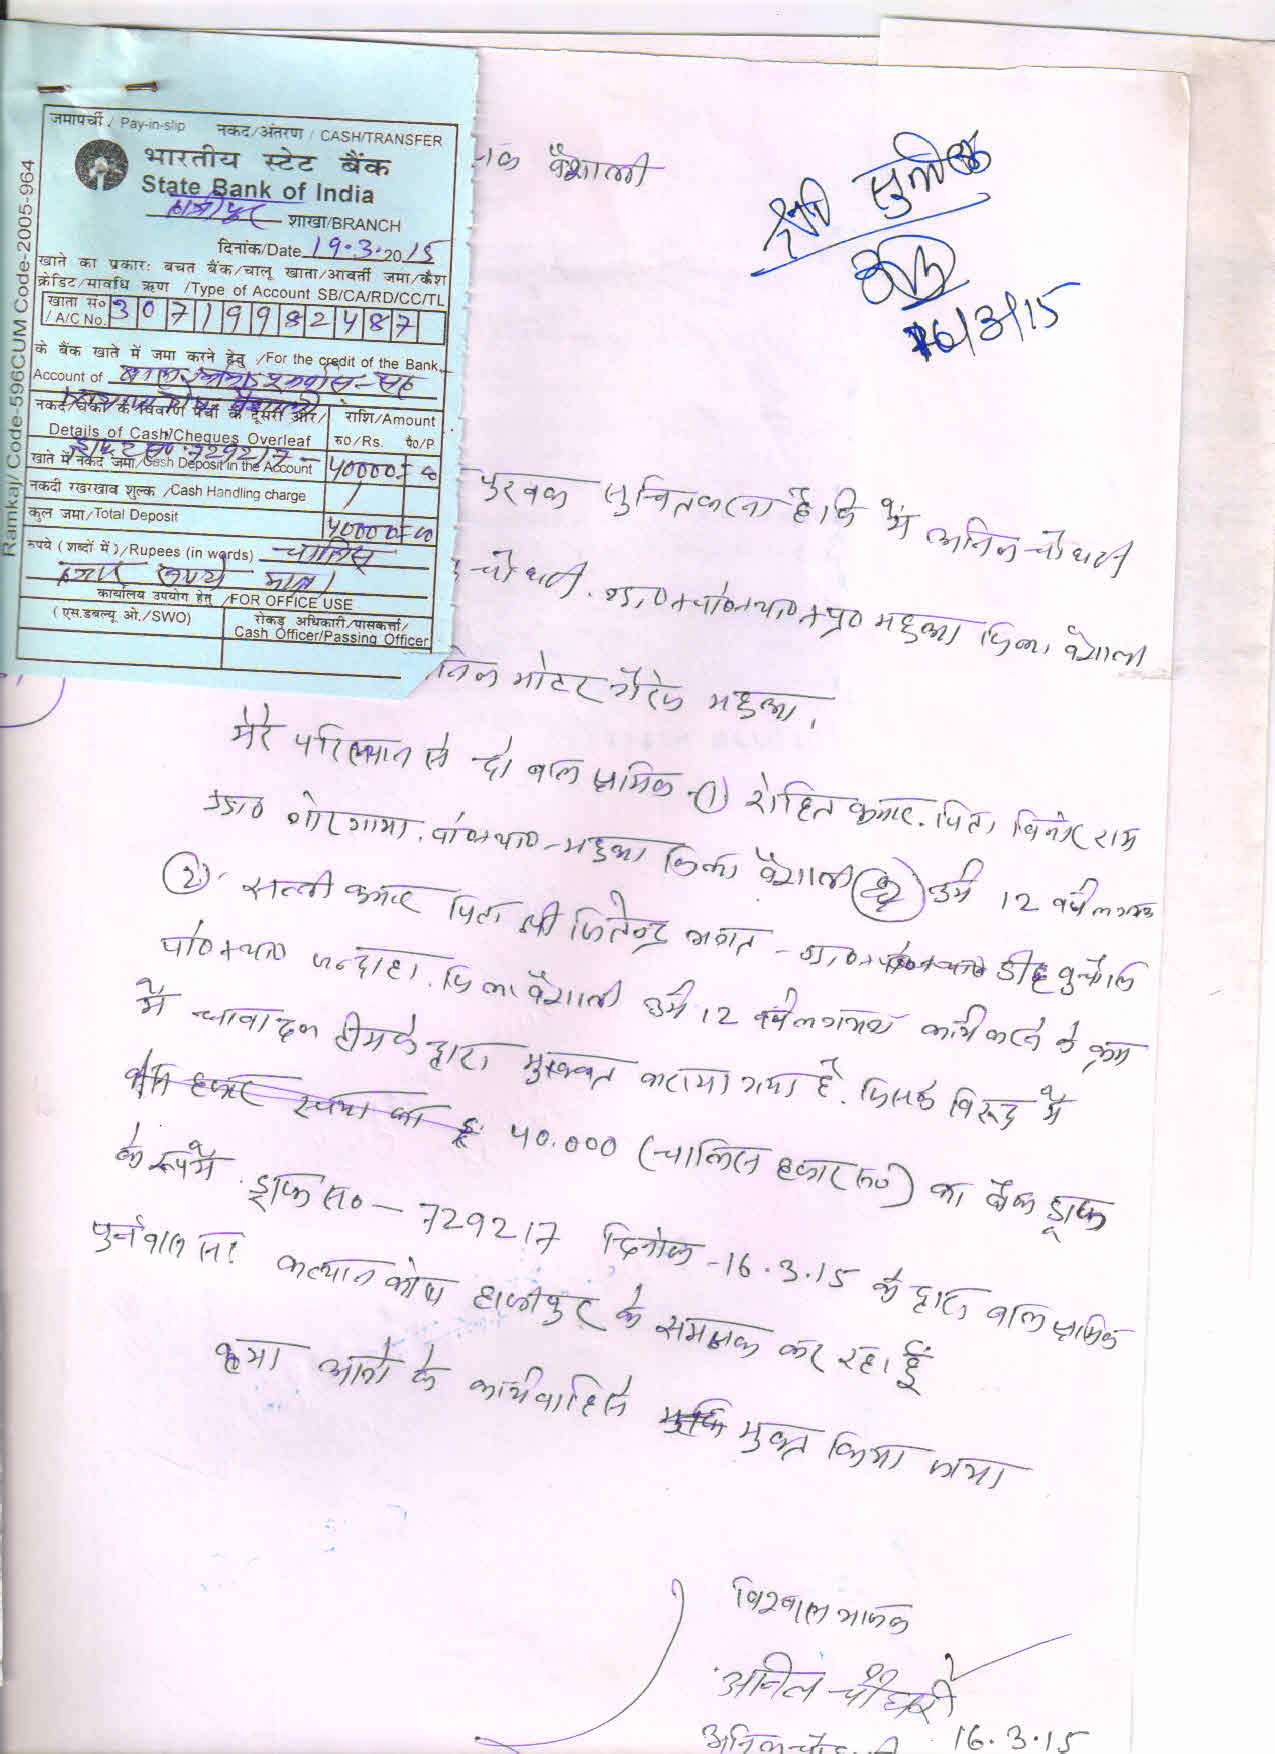 जमापर्ची / Pay-in-slip नकद/अंतरण / CASH/TRANSFER
भारतीय स्टेट बैंक
State Bank of India
हाजीपुर शाखा/BRANCH
दिनांक/Date 19.3.2015
खाते का प्रकार: बचत बैंक/चालू खाता/आवर्ती जमा/कैश
क्रेडिट/मावधि ऋण /Type of Account SB/CA/RD/CC/TL
खाता सं० / A/C No. 30719982487
के बैंक खाते में जमा करने हेतु /For the credit of the Bank
Account of
नकद/चेकों के विवरण पर्ची के दूसरी ओर/ राशि/Amount
Details of Cash/Cheques Overleaf रु०/Rs. पै०/P.
ड्राफ्ट सं०. 729217
खाते में नकद जमा/Cash Deposit in the Account 40000=00
नकदी रखरखाव शुल्क /Cash Handling charge
कुल जमा/Total Deposit 40000=00
रुपये (शब्दों में)/Rupees (in words) चालिस
हजार रूपये मात्र।
कार्यालय उपयोग हेतु /FOR OFFICE USE
(एस.डबल्यू.ओ./SWO) रोकड़ अधिकारी/पासकर्त्ता/
Cash Officer/Passing Officer
Ramkaj/Code-596CUM Code-2005-964
वैशाली
16/3/15
पुरवक सुचित करना है। कि मैं अनिल चौधरी
चौधरी. ग्रा०+पो०+था०+प्र० महुआ जिला वैशाली
अनिल मोटर गैरेज महुआ।
मेरे परिस्थान से दो बाल श्रमिक (1) रोहित कुमार. पिता विनोद राम
ग्रा० गोरगामा. पो०+था०-महुआ जिला वैशाली उर्म 12 वर्ष लगभग
(2) सन्नी कुमार पिता श्री जितेन्द्र भगत - ग्रा० डीह बुचौलि
पो०+था० जन्दाहा. जिला वैशाली उर्म 12 वर्ष लगभग कार्य करने के क्रम
में धावा दल टीम के द्वारा मुक्त कराया गया है. जिसके विरूद्ध मैं
बीस हजार रूपया का 40.000 (चालिस हजार रू०) का बैंक ड्राफ्ट
के रूप में ड्राफ्ट सं० - 729217 दिनांक - 16.3.15 के द्वारा बाल श्रमिक
पुर्नवास सह कल्यान कोष हाजीपुर के समक्षक कर रहा हूँ
कृपया आगे के कार्यवाहि से मुक्त किया जाय।
विश्वास भाजक
अनिल चौधरी
अनिल चौधरी 16.3.15